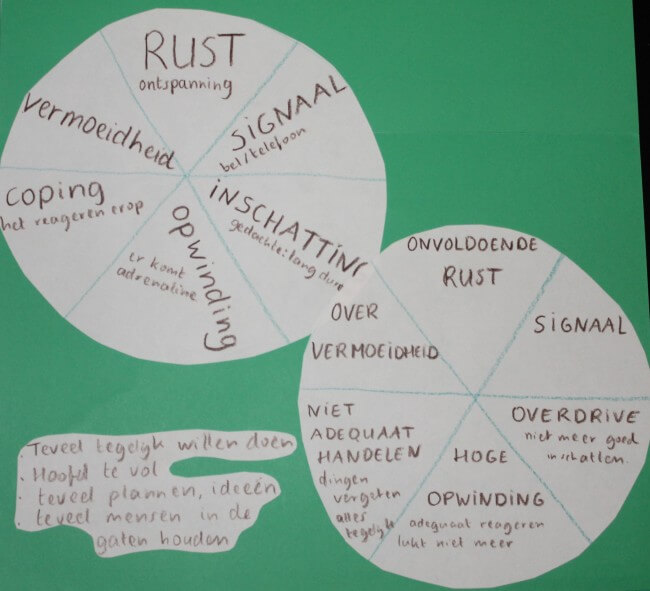 RUST
ontspanning
SIGNAAL
bel/telefoon
INSCHATTING
gedachte: lang dure
opwinding
er komt
adrenaline
coping
het reageren erop
vermoeidheid
ONVOLDOENDE
RUST
SIGNAAL
OVERDRIVE
niet meer goed
inschatten.
HOGE
OPWINDING
adequaat reageren
lukt niet meer
NIET
ADEQUAAT
HANDELEN
dingen
vergeten
alles
tegelijk
OVER
VERMOEIDHEID
. Teveel tegelijk willen doen
. Hoofd te vol
. teveel plannen, ideeën
. teveel mensen in de
gaten houden